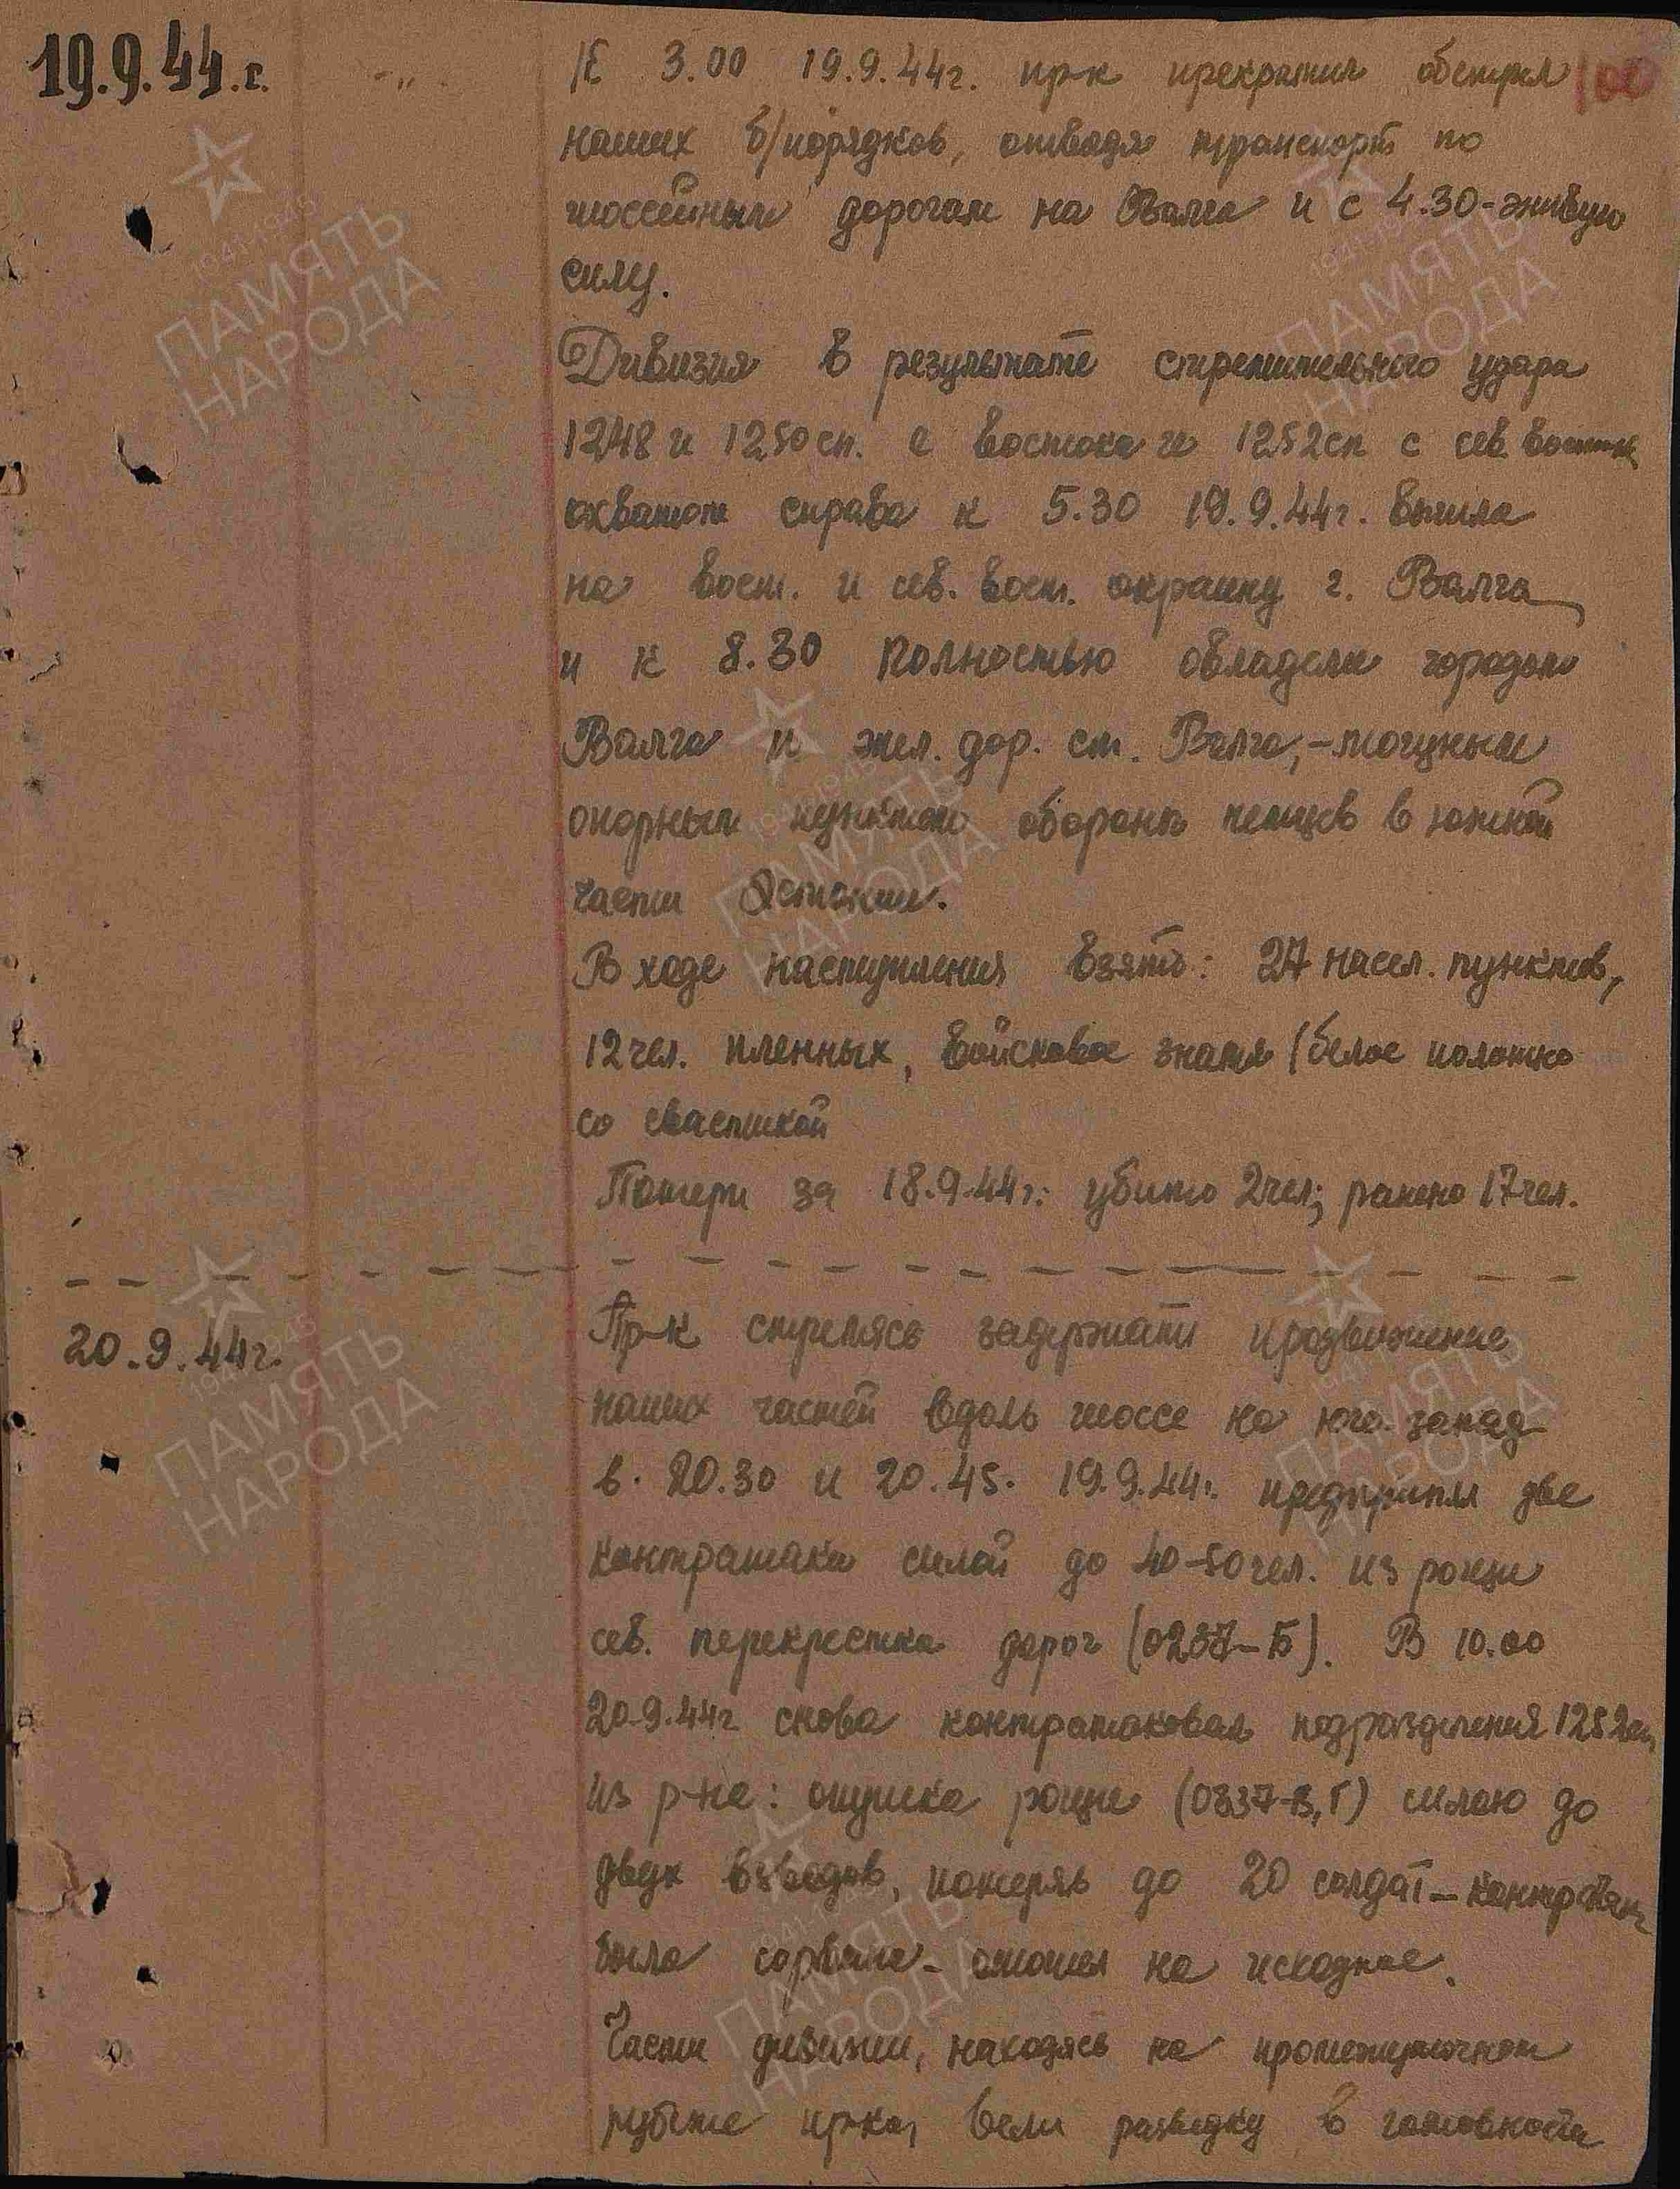 19.9.44.г.
—"—
К 3.00 19.9.44г. пр-к прекратил обстрел 100
наших б/порядков, отводя транспорт по
шоссейным дорогам на Валга и с 4.30-живую
силу.
Дивизия в результате стремительного удара
1248 и 1250сп. с востока и 1252сп с сев. востока
охватом справа к 5.30 19.9.44г. вышла
на вост. и сев. вост. окраину г. Валга
и к 8.30 полностью овладела городом
Валга и жел. дор. ст. Валга,-мощным
опорным пунктом обороны немцев в южной
части Эстонии.
В ходе наступления взято: 27 насел. пунктов,
12 чел. пленных, войсковое знамя (белое полотно
со свастикой
Потери за 18.9.44г.: убито 2чел; ранено 17чел.
20.9.44г.
Пр-к стремясь задержать продвижение
наших частей вдоль шоссе на юго-запад
в. 20.30 и 20.45. 19.9.44г. предпринял две
контратаки силой до 40-50чел. из рощи
сев. перекрестка дорог (0237-Б). В 10.00
20.9.44г. снова контратаковал подразделения 1252сп
из р-на: опушка рощи (0337-В,Г) силою до
двух взводов, потеряв до 20 солдат-контратака
была сорвана- отошел на исходные.
Части дивизии, находясь на промежуточном
рубеже пр-ка, вели разведку в готовности
ПАМЯТЬ
НАРОДА
1941-1945
ПАМЯТЬ
НАРОДА
1941-1945
ПАМЯТЬ
НАРОДА
1941-1945
ПАМЯТЬ
НАРОДА
1941-1945
ПАМЯТЬ
НАРОДА
1941-1945
ПАМЯТЬ
НАРОДА
1941-1945